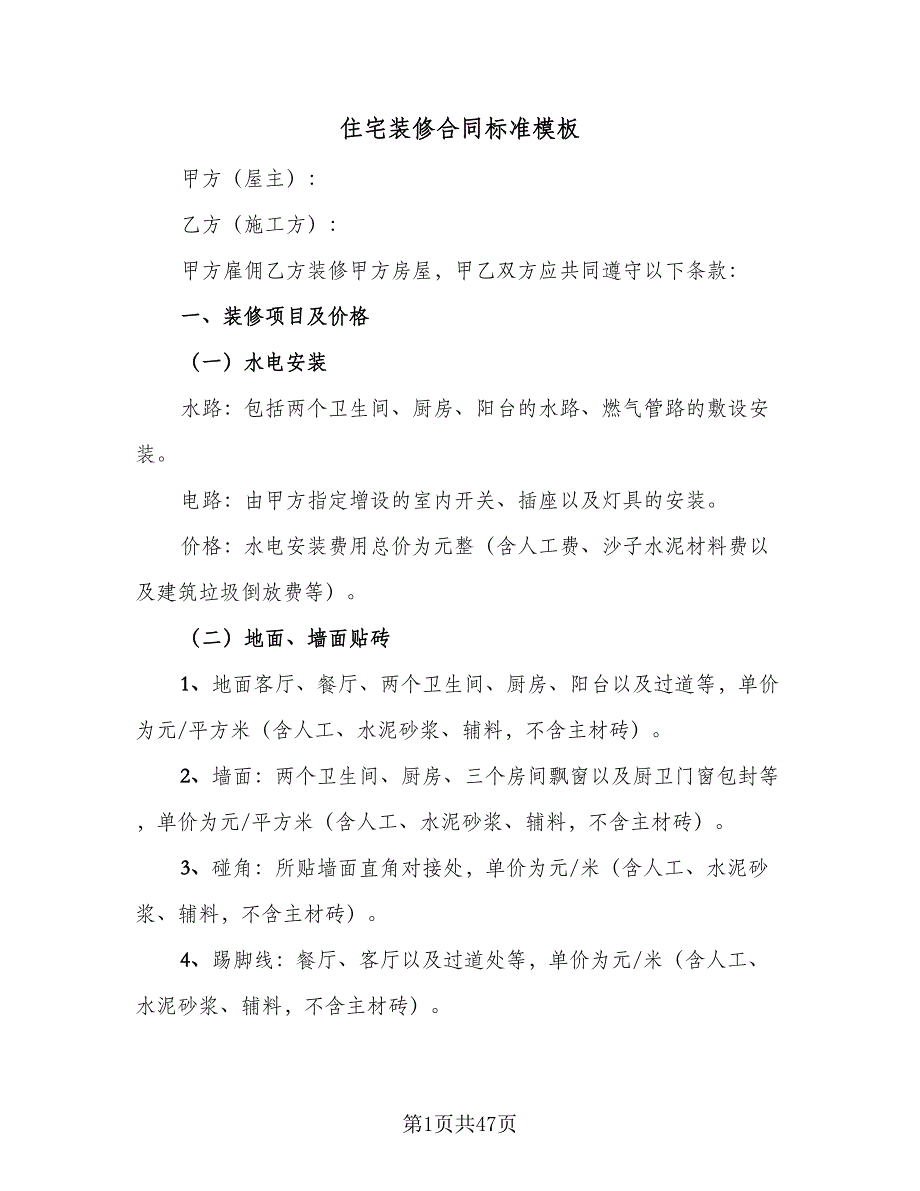 住宅装修合同标准模板
甲方（屋主）：
乙方（施工方）：
甲方雇佣乙方装修甲方房屋，甲乙双方应共同遵守以下条款：
一、装修项目及价格
（一）水电安装
水路：包括两个卫生间、厨房、阳台的水路、燃气管路的敷设安
装。
电路：由甲方指定增设的室内开关、插座以及灯具的安装。
价格：水电安装费用总价为元整（含人工费、沙子水泥材料费以
及建筑垃圾倒放费等）。
（二）地面、墙面贴砖
1、地面客厅、餐厅、两个卫生间、厨房、阳台以及过道等，单价
为元/平方米（含人工、水泥砂浆、辅料，不含主材砖）。
2、墙面：两个卫生间、厨房、三个房间飘窗以及厨卫门窗包封等
，单价为元/平方米（含人工、水泥砂浆、辅料，不含主材砖）。
3、碰角：所贴墙面直角对接处，单价为元/米（含人工、水泥砂
浆、辅料，不含主材砖）。
4、踢脚线：餐厅、客厅以及过道处等，单价为元/米（含人工、
水泥砂浆、辅料，不含主材砖）。
第1页共47页